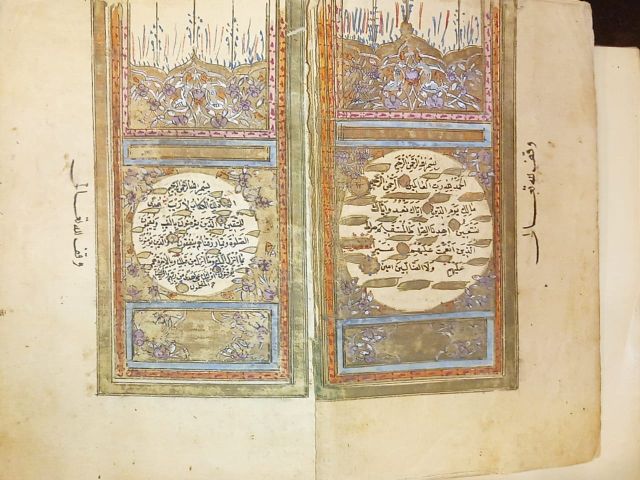 وقف لله تعالى
بسم الله الرحمن الرحيم
الحمد لله رب العالمين الرحمن الرحيم
مالك يوم الدين اياك نعبد واياك
نستعين اهدنا الصراط المستقيم صراط
الذين انعمت عليهم غير
عليهم ولا الضالين امين
بسم الله الرحمن الرحيم
ذلك الكتاب لا ريب
للمتقين الذين يؤمنون بالغيب ويقيمون
الصلوة ومما رزقناهم ينفقون والذين يؤمنون
بما انزل اليك وما انزل من
المفلحون
وقف لله تعالى